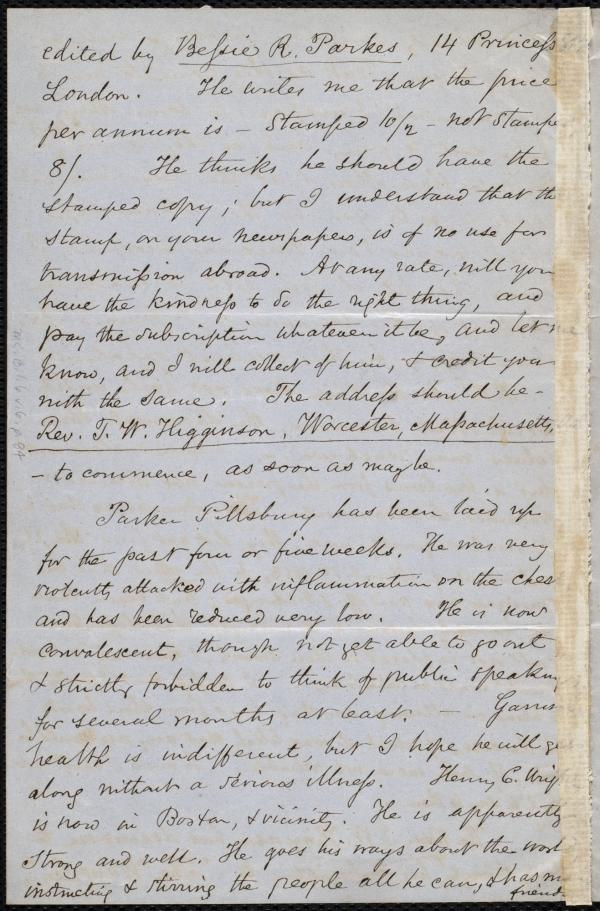 edited by Bessie R. Parkes, 14 Princess
London. He writes me that the price
per annum is – Stamped 10/2 – not Stampe
8/. He thinks he should have the
stamped copy; but I understand that th
stamp, on your newspapers, is of no use for
transmission abroad. At any rate, will you
have the kindness to do the right thing, and
pay the subscription whatever it be, and let me
know, and I will collect of him, & credit you
with the same. The address should be –
Rev. T. W. Higginson, Worcester, Massachusetts,
– to commence, as soon as may be.
Parker Pillsbury has been laid up
for the past four or five weeks. He was very
violently attacked with inflammation on the ches
and has been reduced very low. He is now
convalescent, though not yet able to go out
& strictly forbidden to think of public speaking
for several months at least. – Garris
health is indifferent, but I hope he will ge
along without a serious illness. Henry C. Wrigh
is now in Boston, & vicinity. He is apparently
strong and well. He goes his ways about the work
instructing & stirring the people all he can, & has m
friends